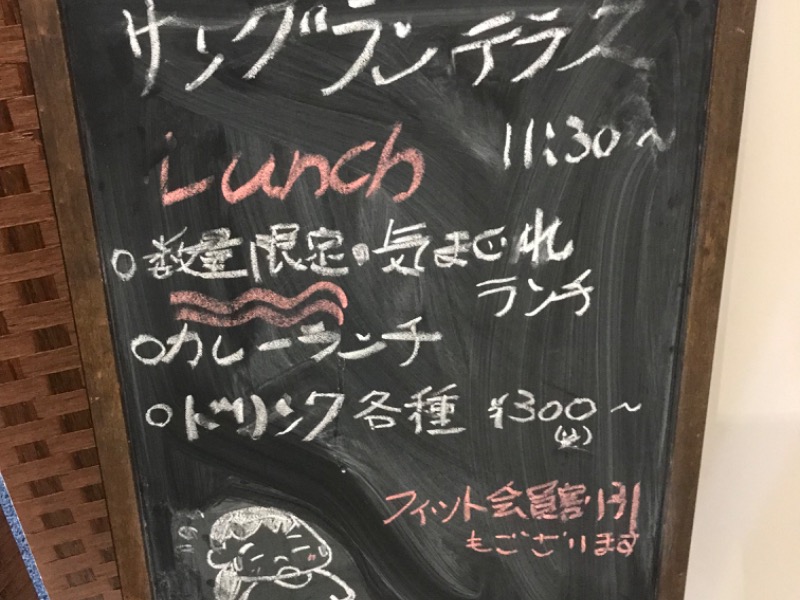 サングランテラス
Lunch 11:30~
○数量限定・気まぐれ
ランチ
○カレーランチ
○ドリンク各種 ¥300~
フィット会員割引
もございます